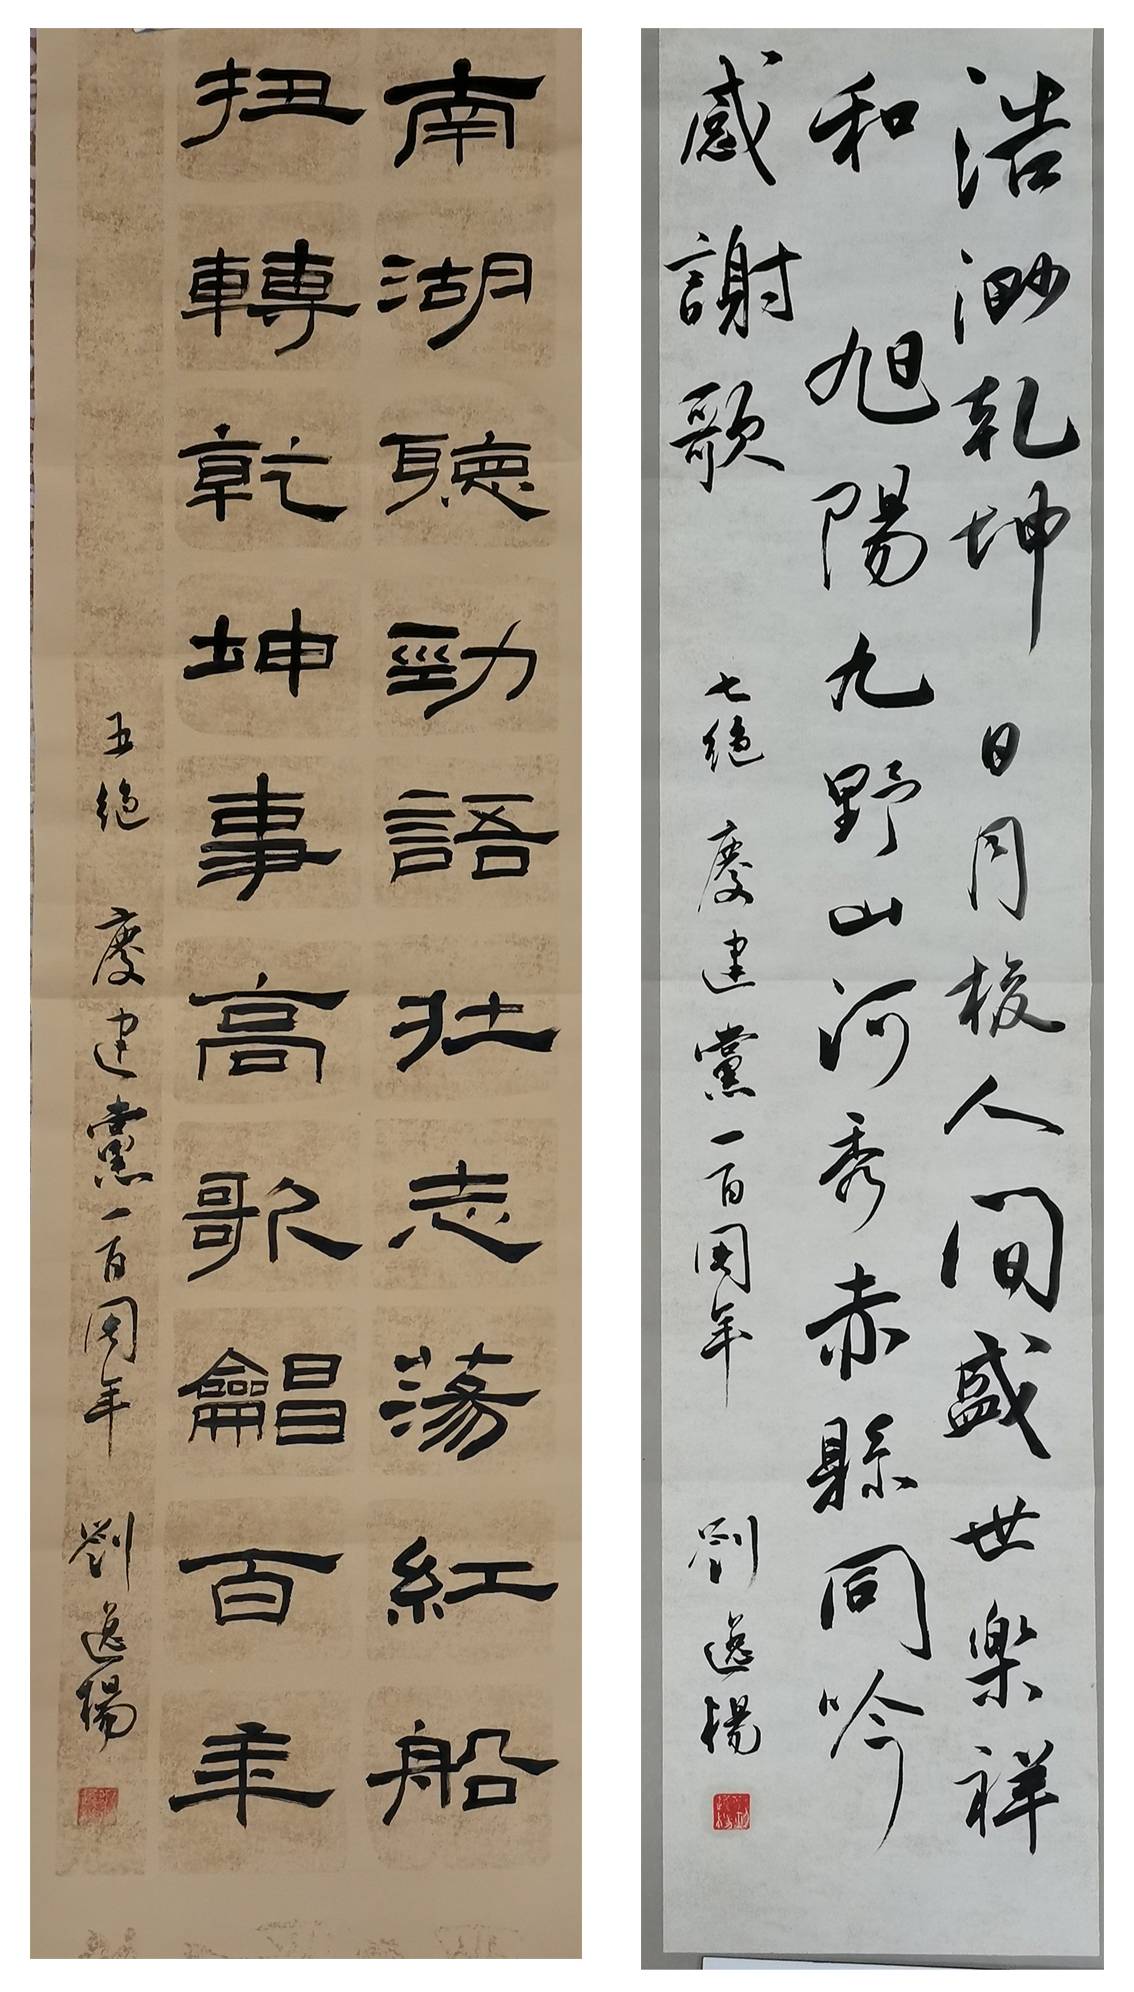 南湖聽勁語壯志蕩紅船
扭轉乾坤事高歌唱百年
五絕 慶建黨一百周年 劉逸楊
浩渺乾坤日月梭人間盛世樂祥
和旭陽九野山河秀赤縣同吟
感謝歌 七絕 慶建黨一百周年 劉逸楊